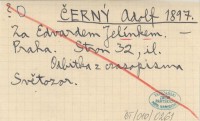 : O ČERNÝ Adolf 1897.
Za Edvardem Jelínkem. —
Praha. Stron 32, il.
Odbitka z czasopisma
Světozor.